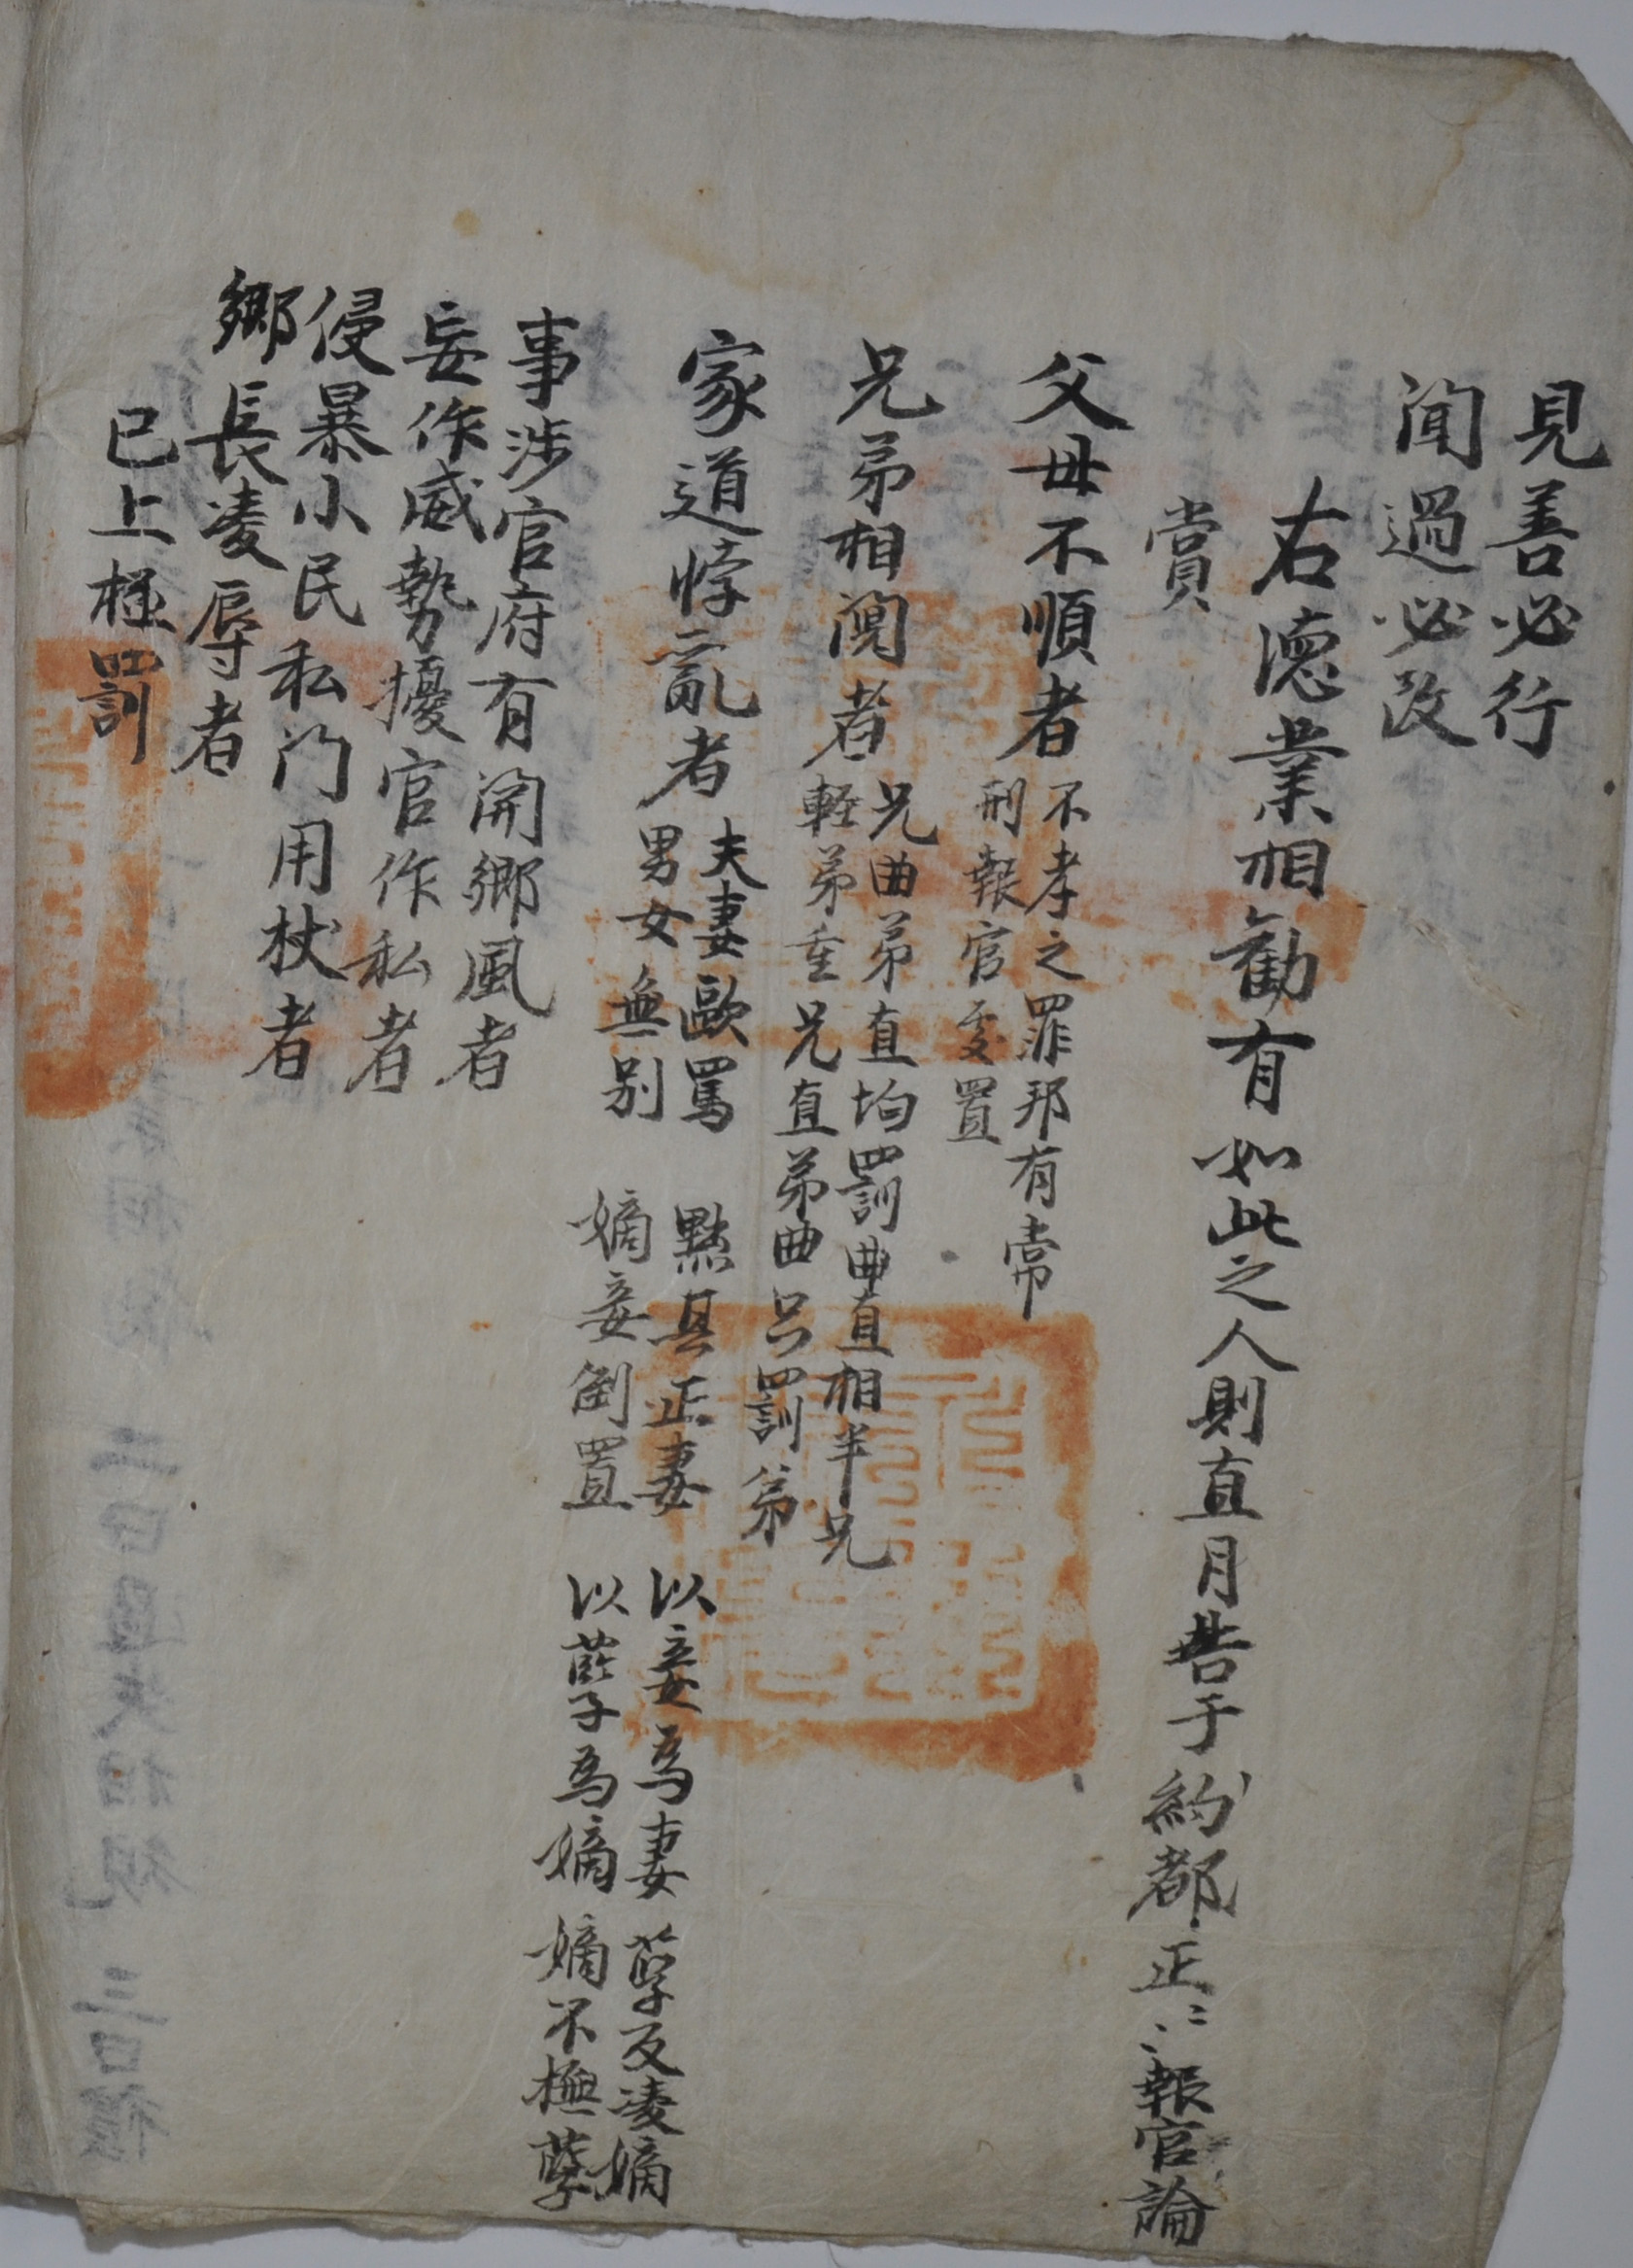 見善必行
聞過必改
右德業相勸有如此之人則直月告于約都正〻〻報官論
賞
父母不順者 不孝之罪邦有常
刑報官處置
兄弟相鬩者 兄曲弟直均罰曲直相半兄
輕弟重兄直弟曲只罰弟
家道悖亂者 夫妻敺罵 黜其正妻 以妾爲妻 孽反凌嫡
男女無別 嫡妾倒置 以孽爲嫡 嫡不撫孽
事涉官府有關鄉風者
妄作威勢擾官作私者
侵暴小民私門用杖者
鄉長凌辱者
已上極罰